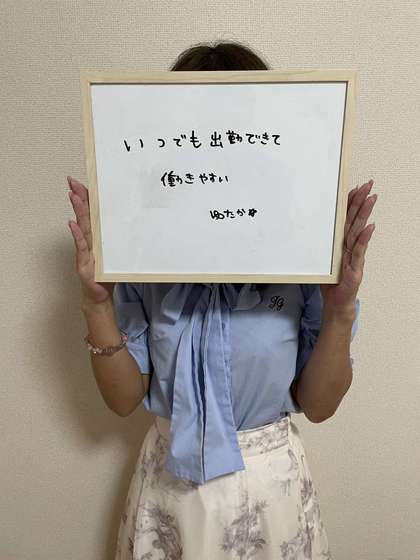 いつでも出勤できて
働きやすい
ゆたか☆
JG